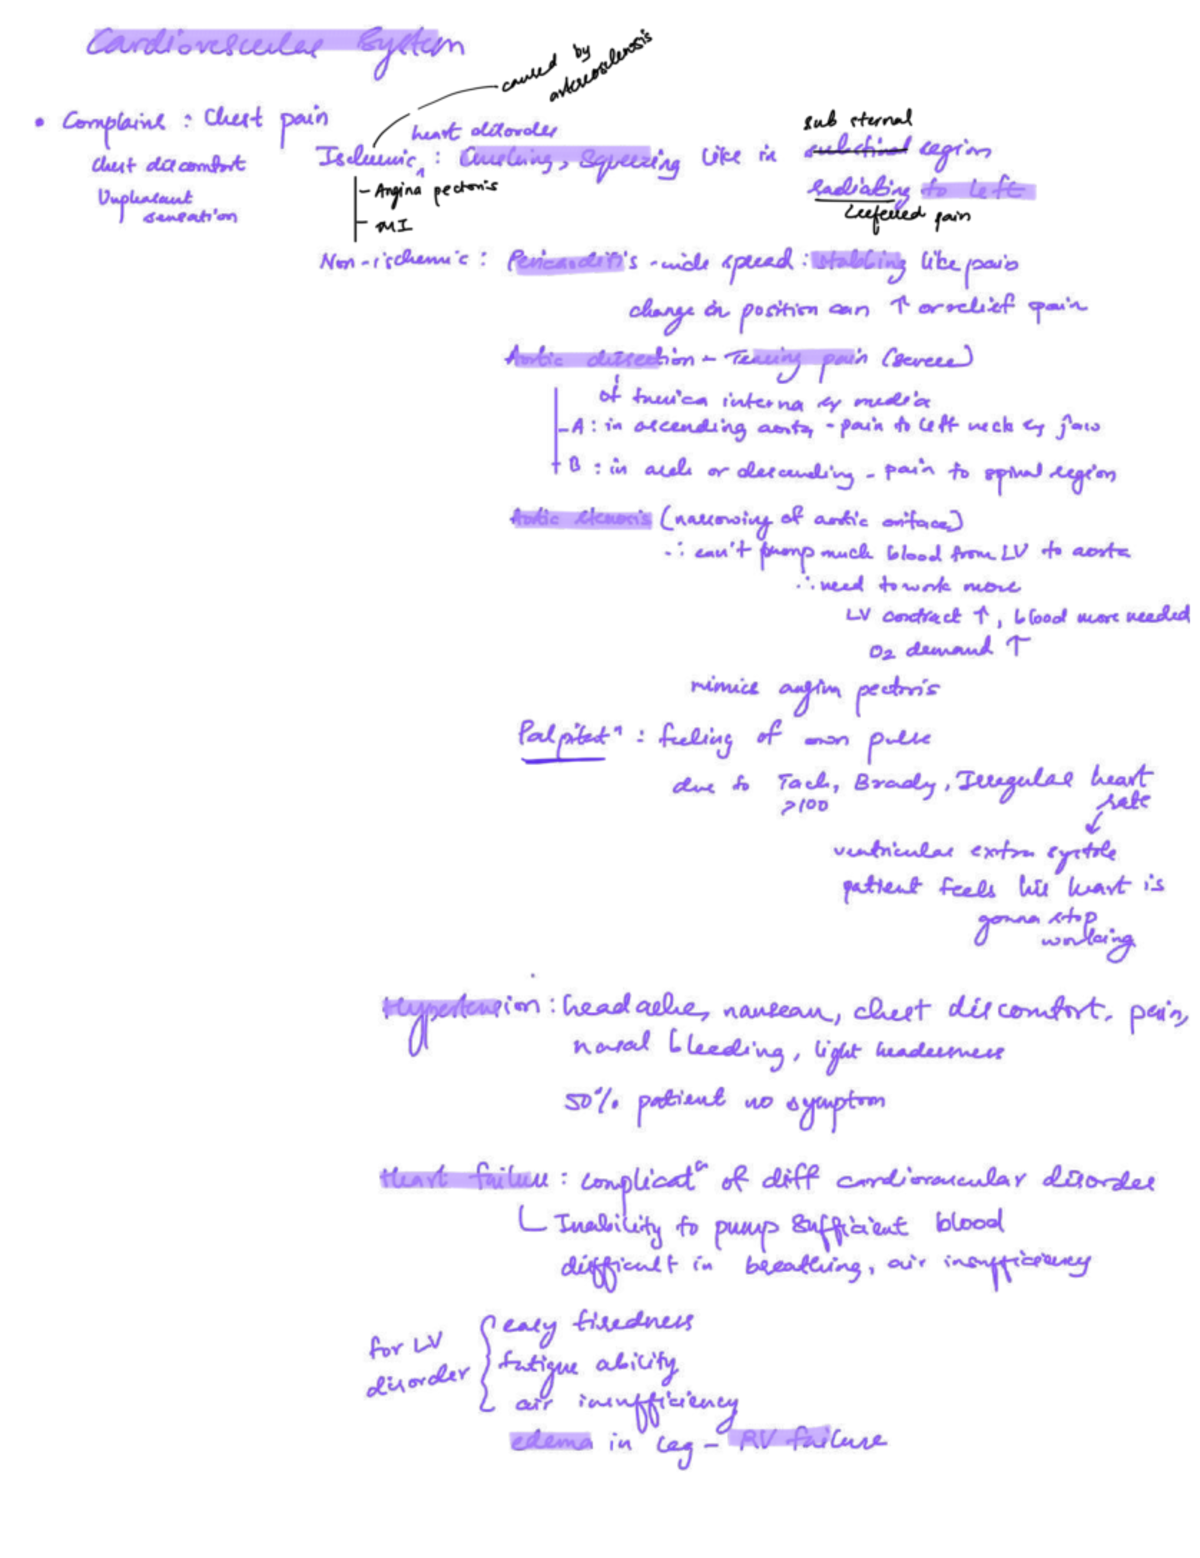 Cardiovascular System
caused by
arterosclerosis
• Complains : Chest pain
chest discomfort
Unpleasant
sensation
heart disorder
Ischemic : Crushing, Squeezing like in region
sub sternal
radiating to left
(referred pain
- Angina pectoris
- MI
Non-ischemic : Pericarditis - wide spread : stabbing like pain
change in position can ↑ or relief pain
Aortic dissection - Tearing pain (severe)
of tunica interna & media
- A : in ascending aorta - pain to left neck & jaw
- B : in arch or descending - pain to spinal region
Aortic stenosis (narrowing of aortic orifice)
∴ can't pump much blood from LV to aorta
∴ need to work more
LV contract ↑, blood more needed
O2 demand ↑
mimics angina pectoris
Palpitatn : feeling of own pulse
due to Tach, Brady, Irregular heart
>100 rate
ventricular extra systole
patient feels his heart is
gonna stop
working
Hypertension : headache, nausean, chest discomfort, pain,
nasal bleeding, light headedness
50% patient no symptom
Heart failure : complicatn of diff cardiovascular disorder
Inability to pump sufficient blood
difficult in breathing, air insufficiency
for LV
disorder
easy tiredness
fatigue ability
air insufficiency
edema in leg - RV failure